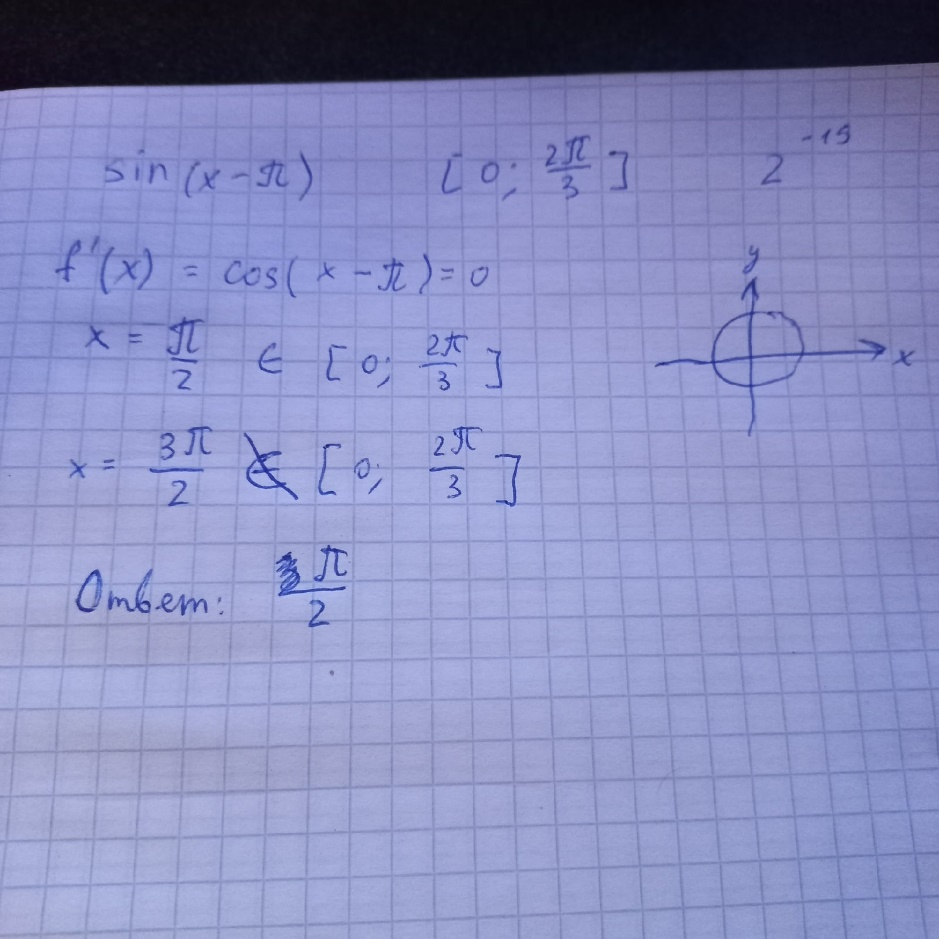 sin(x-π) [0; 2π/3] 2^-19
f'(x) = cos(x-π)=0
y
x = π/2 ∈ [0; 2π/3]
x
x = 3π/2 ∉ [0; 2π/3]
Ответ: π/2